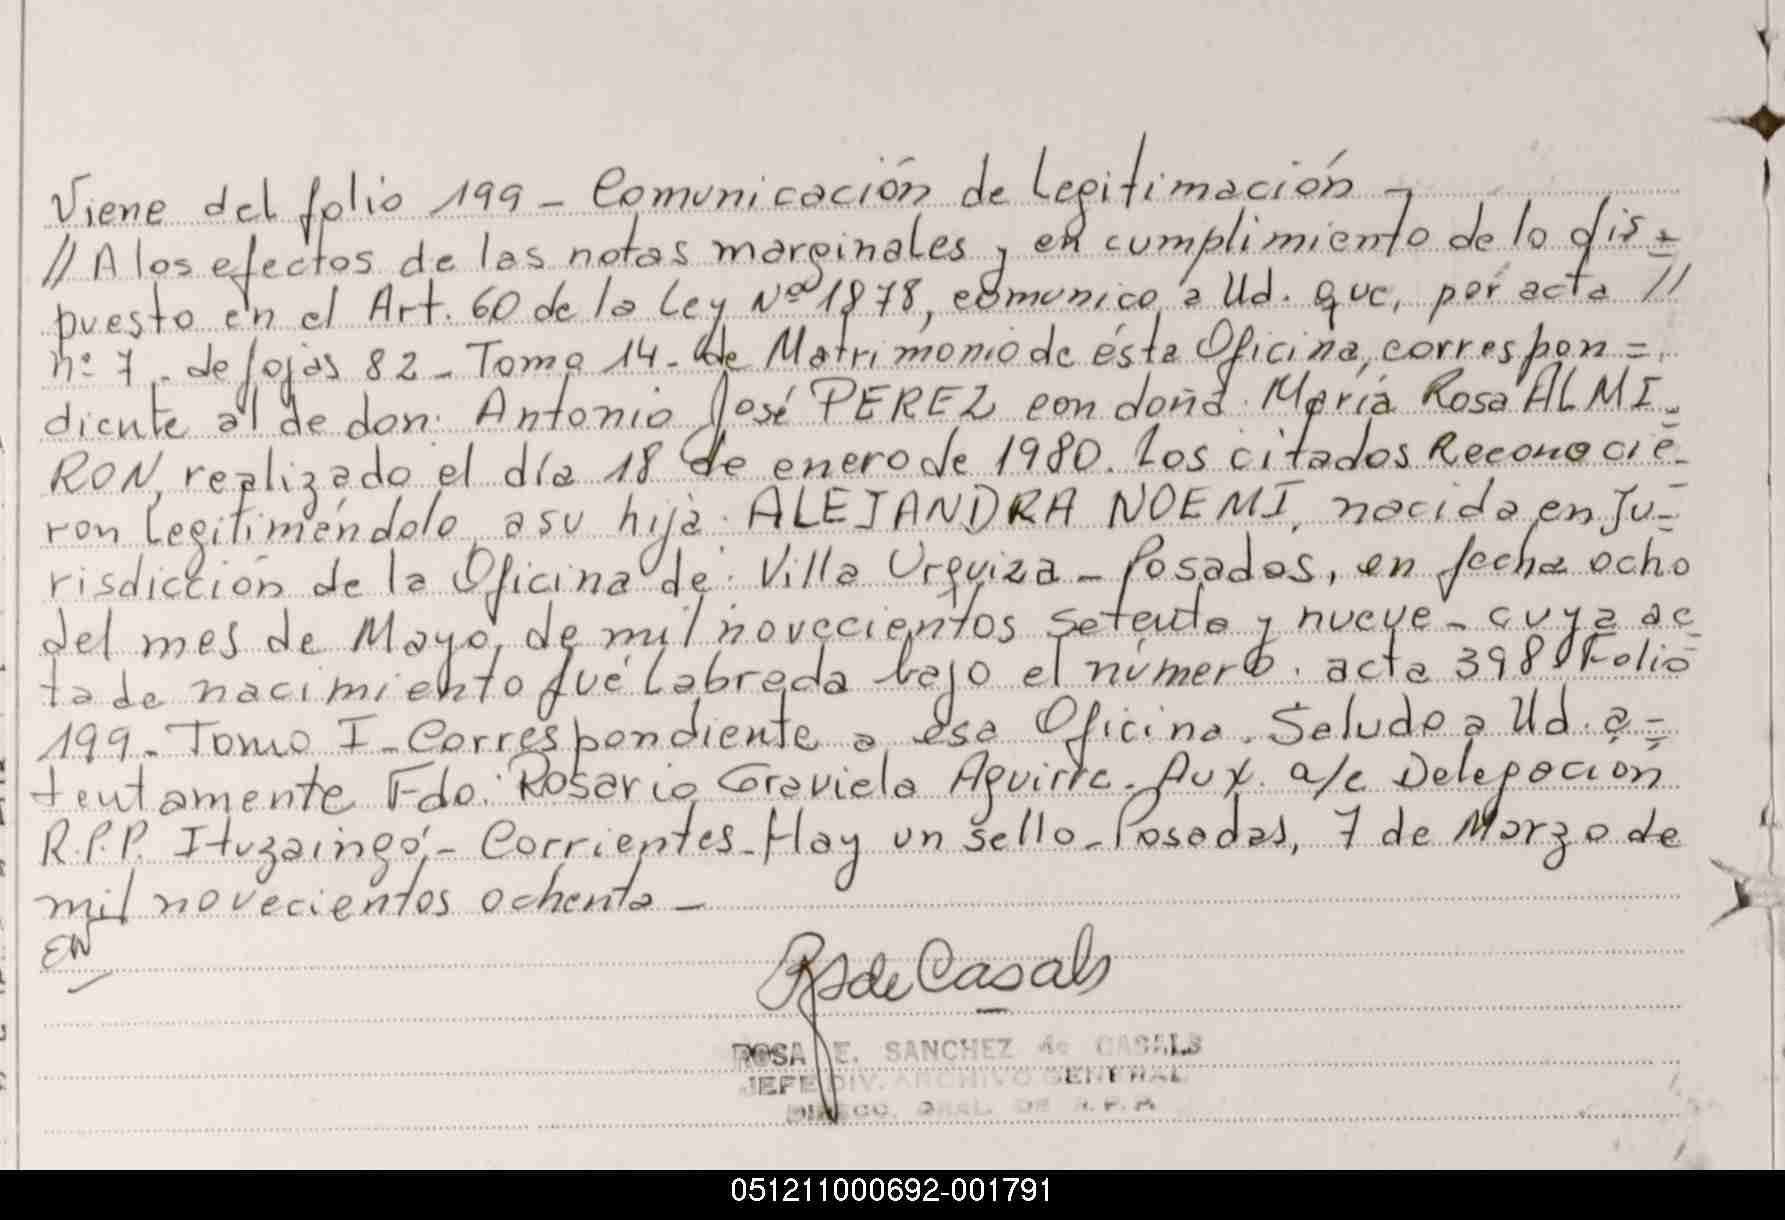 Viene del folio 199 - Comunicación de Legitimación -
// A los efectos de las notas marginales y en cumplimiento de lo dis=
puesto en el Art. 60 de la Ley Nº 1878, comunico a Ud. que, por acta //
nº 7 - de fojas 82 - Tomo 14 - de Matrimonio de ésta Oficina, correspon=
diente al de don: Antonio José PEREZ con doña: María Rosa ALMI=
RON, realizado el día 18 de enero de 1980. Los citados Reconocie-
ron Legitimándolo a su hija: ALEJANDRA NOEMI, nacida en Ju=
risdicción de la Oficina de: Villa Urquiza - Posadas, en fecha ocho
del mes de Mayo, de mil novecientos setenta y nueve - cuya ac
ta de nacimiento fué Labrada bajo el número: acta 398 Folio
199 - Tomo I - Correspondiente a esa Oficina. Saludo a Ud. a=
tentamente Fdo: Rosario Graviela Aguirre. Aux. a/c Delegación
R.P.P. Ituzaingó - Corrientes - Hay un sello - Posadas, 7 de Marzo de
mil novecientos ochenta -
EN
RS de Casals
ROSA E. SANCHEZ de CASALS
JEFE DIV. ARCHIVO GENERAL
DIRECC. GRAL. DE R.P.P.
051211000692-001791